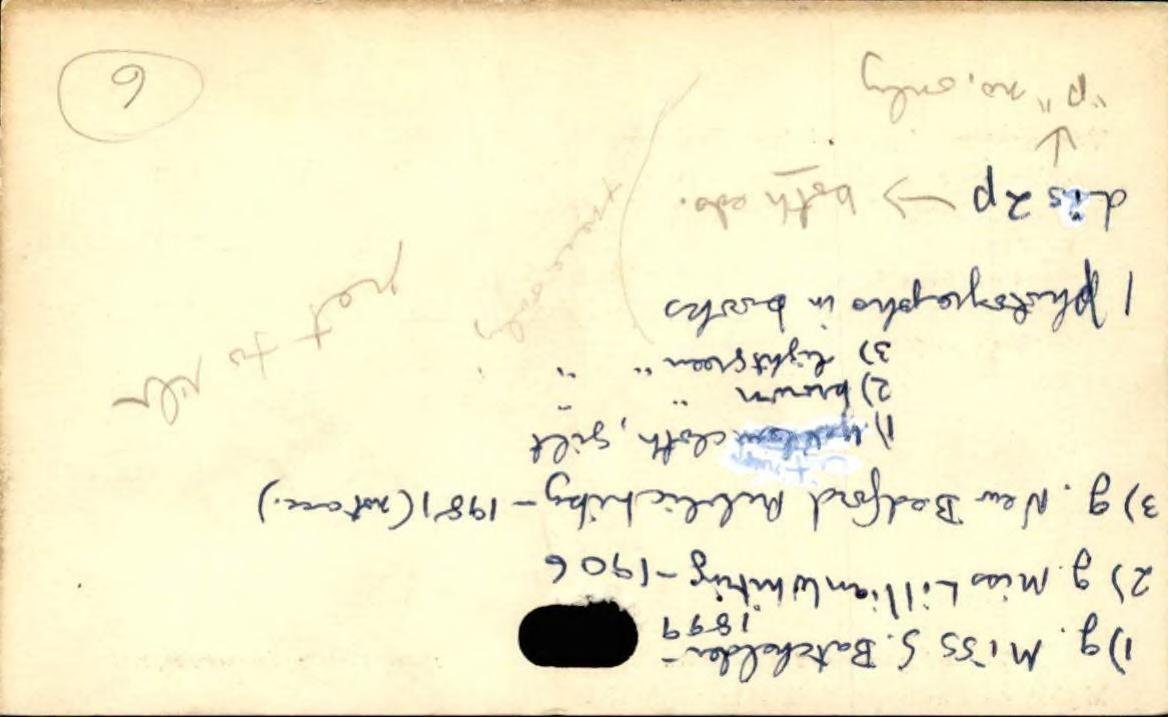 1) g. Miss S. Batchelder -
1899
2) g. Miss Lillian Whiting - 1906
3) g. New Bedford Public Liby - 1981 (not acc.)
1) cloth, gilt
2) brown " "
3) light green " "
1 photographs in books
dis 2p → both eds.
↑
"p" no. only
not to
6